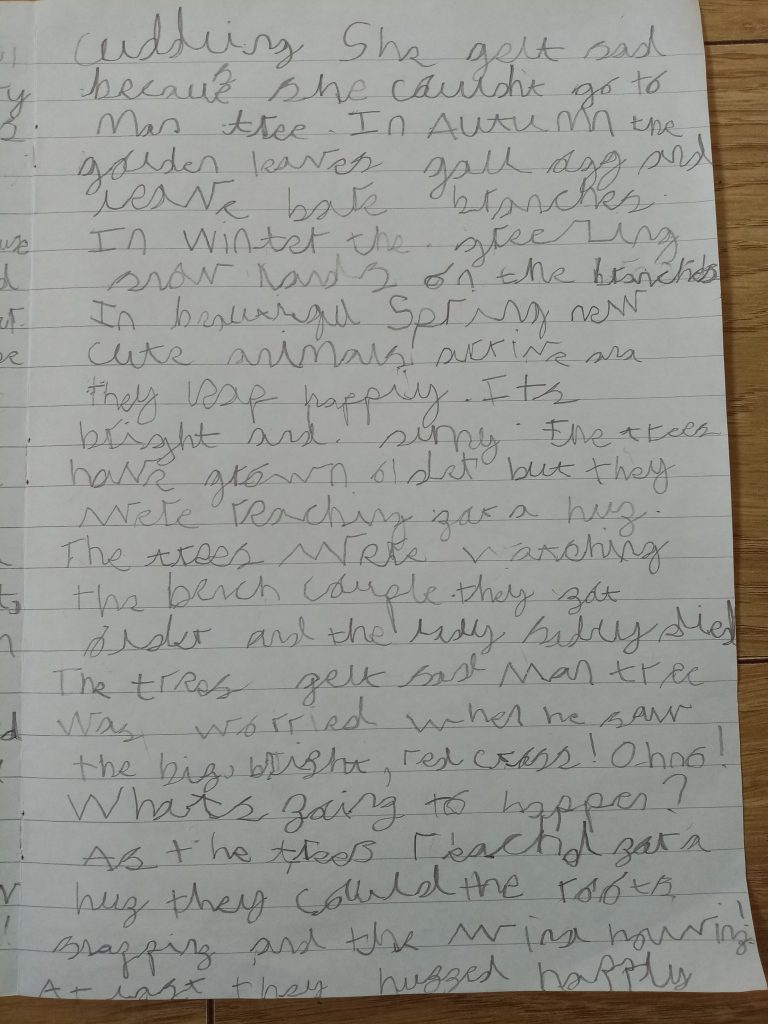 cuddling She felt sad
because she couldnt go to
Man tree. In Autumn the
golden leaves fall off and
leave bare branches.
In winter the freezing
snow lands on the branches
In beautiful Spring new
cute animals arrive and
they leap happily. Its
bright and sunny the trees
have grown older but they
were reaching for a hug.
The trees were watching
the bench couple. they got
older and the lady sadly died
The trees felt sad Man tree
was worried when he saw
the big, bright, red cross! Oh no!
Whats going to happen?
As the trees reachd for a
hug they could the roots
snapping and the wind howling!
At last they hugged happly